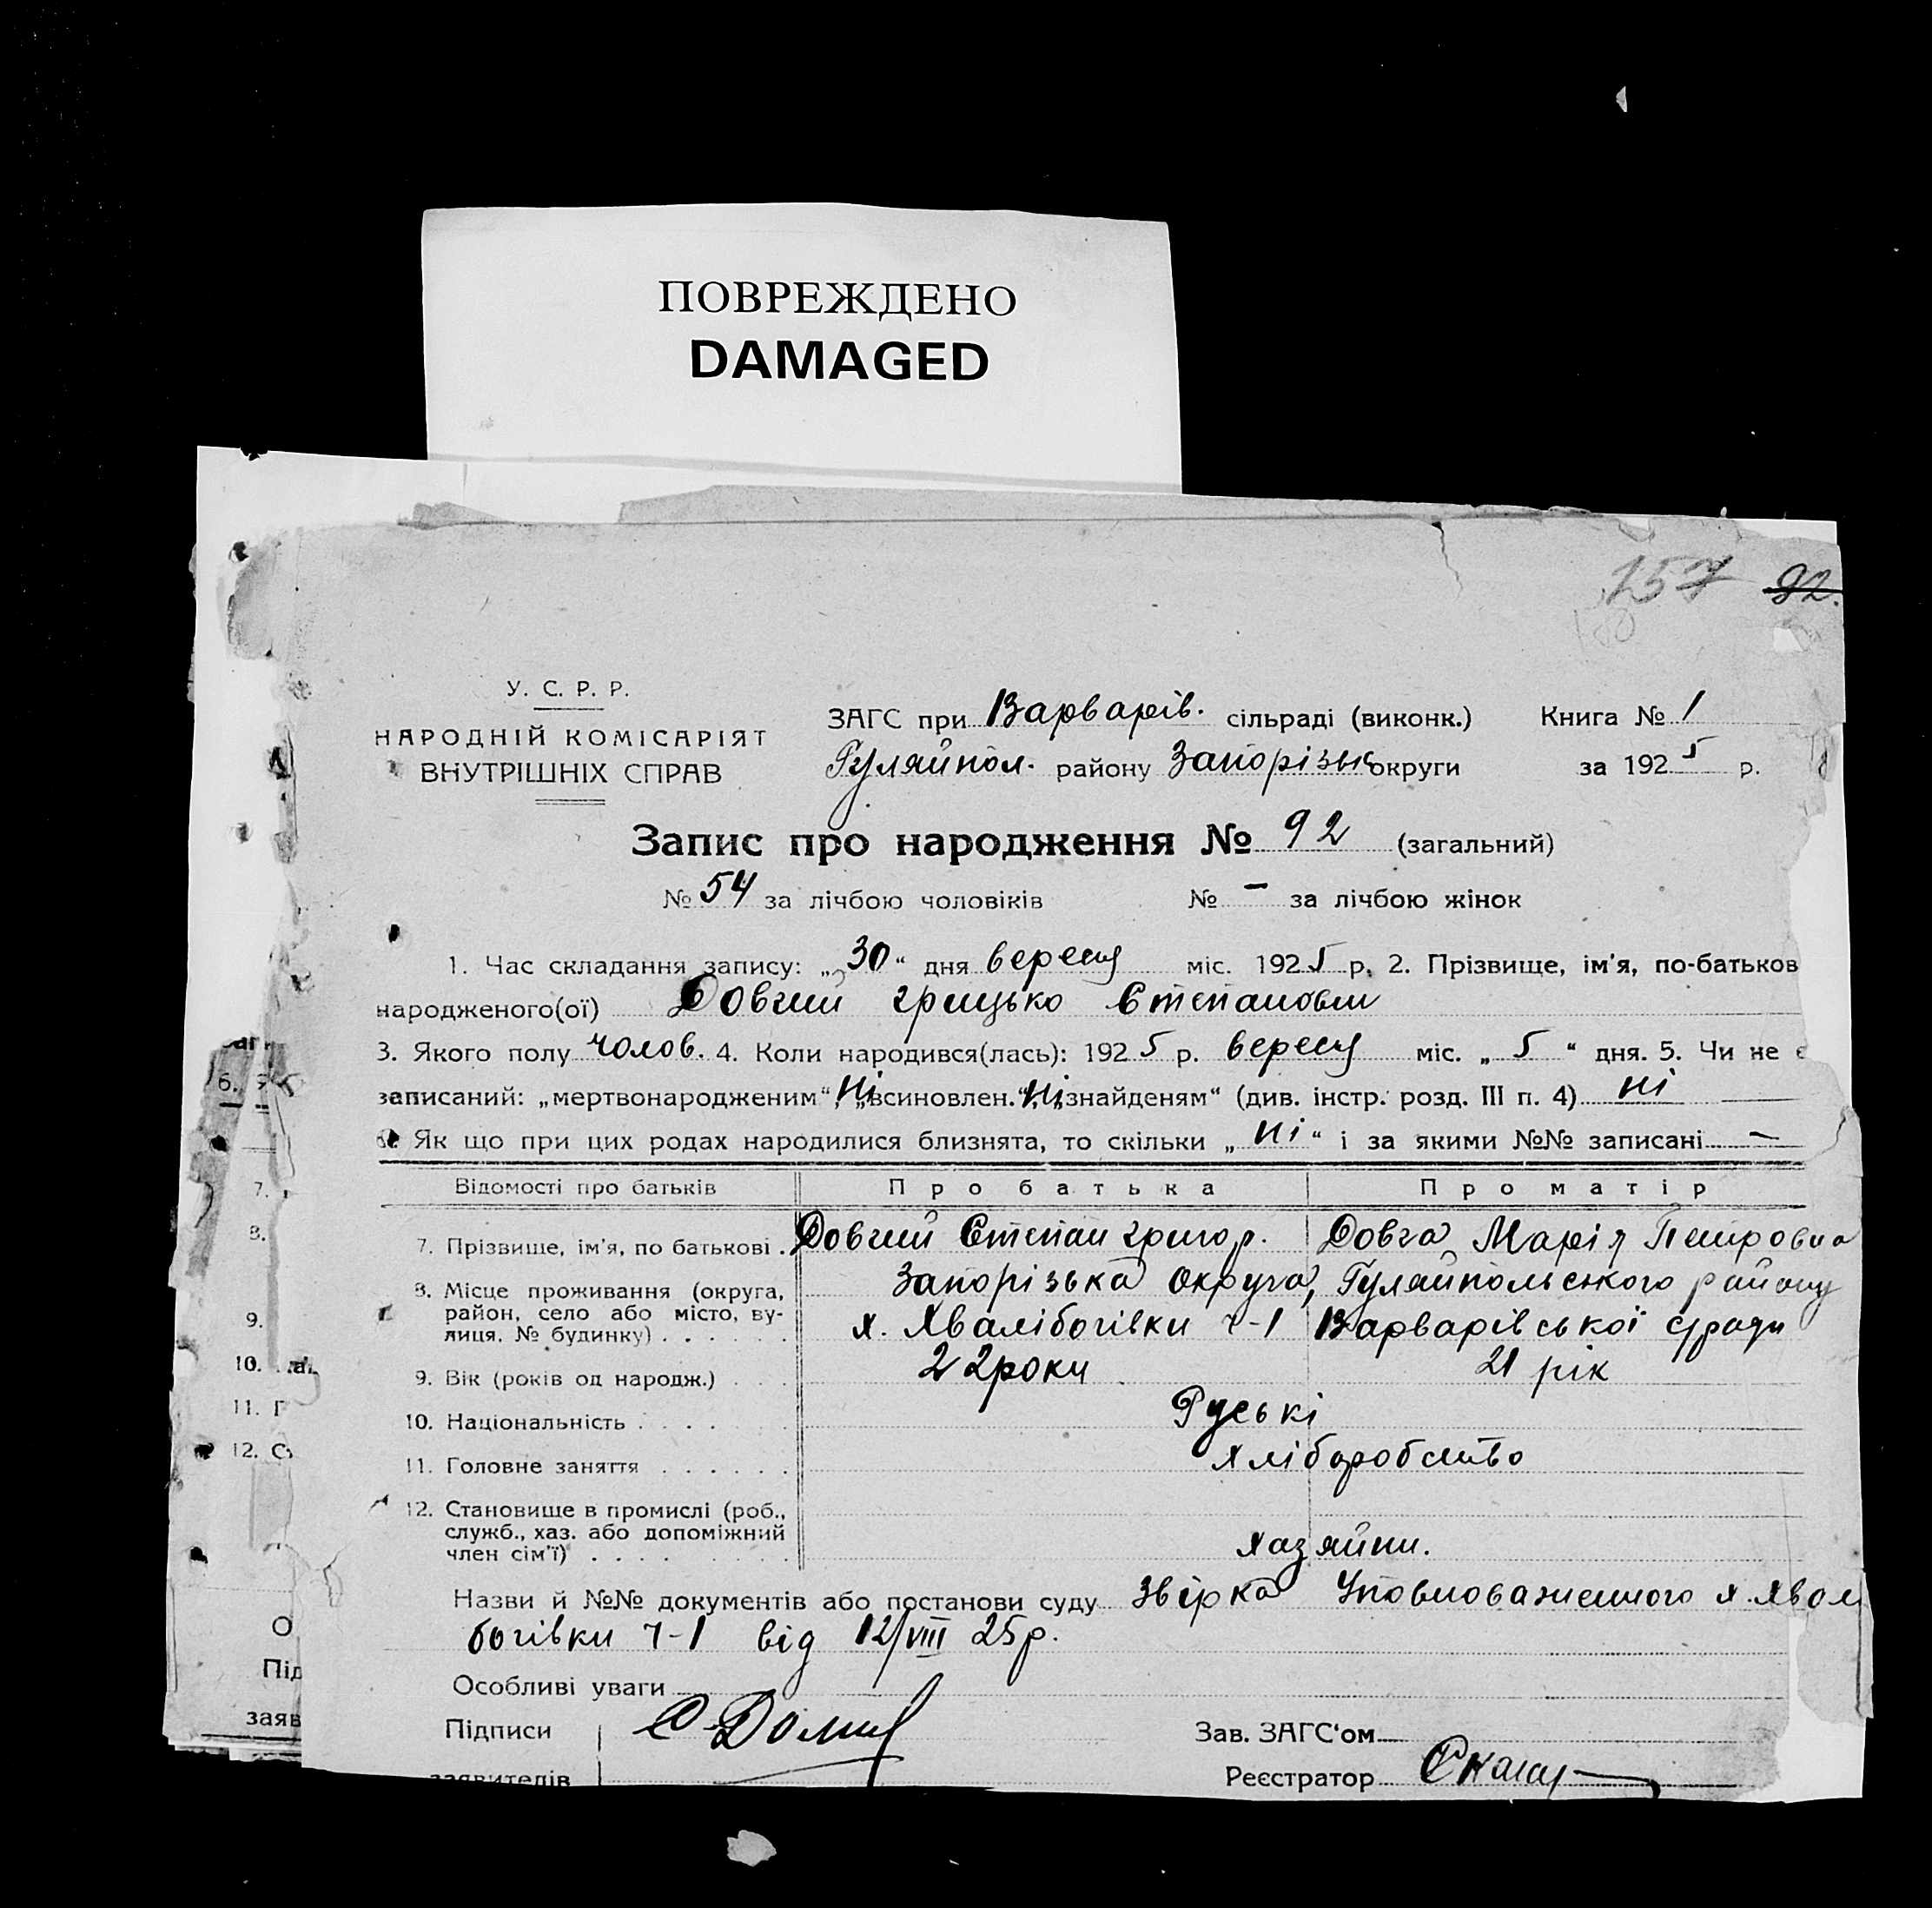 ПОВРЕЖДЕНО
DAMAGED
157 92.
У. С. Р. Р.
НАРОДНІЙ КОМІСАРІЯТ
ВНУТРІШНІХ СПРАВ
ЗАГС при Варварів. сільраді (виконк.) Книга № 1
Гуляйпол. району Запорізьк округи за 1925 р.
Запис про народження № 92 (загальний)
№ 54 за лічбою чоловіків № – за лічбою жінок
1. Час складання запису: „30“ дня вересня міс. 1925 р. 2. Прізвище, ім'я, по-батьков
народженого(ої) Довгий Грицько Степанович
3. Якого полу чолов. 4. Коли народився(лась): 1925 р. вересня міс. „5“ дня. 5. Чи не є
записаний: „мертвонародженим“, ні „всиновлен.“, ні „знайденям“ (див. інстр. розд. III п. 4) ні
6. Як що при цих родах народилися близнята, то скільки „ні“ і за якими №№ записані –
Відомості про батьків Про батька Про матір
7. Прізвище, ім'я, по батькові . Довгий Степан Григор. Довга Марія Петровна
8. Місце проживання (округа, Запорізька округа, Гуляйпольського району
район, село або місто, ву-
лиця, № будинку) . . . . . . х. Хвалібогівки ч-1 Варварівської с/ради
9. Вік (років од народж.) . . . 22 роки 21 рік
10. Національність . . . . Руські
11. Головне заняття . . . . . . хліборобство
12. Становище в промислі (роб.,
служб., хаз. або допоміжний
член сім'ї) . . . . . . . . хазяйни.
Назви й №№ документів або постанови суду Звірка Уповноваженного х. Хвалі
богівки ч-1 від 12/VIII 25р.
Особливі уваги
Підписи
Зав. ЗАГС‘ом
заявителів
Реєстратор
7.
8.
9.
10.
11. Г
12. С
О
Під
заяв